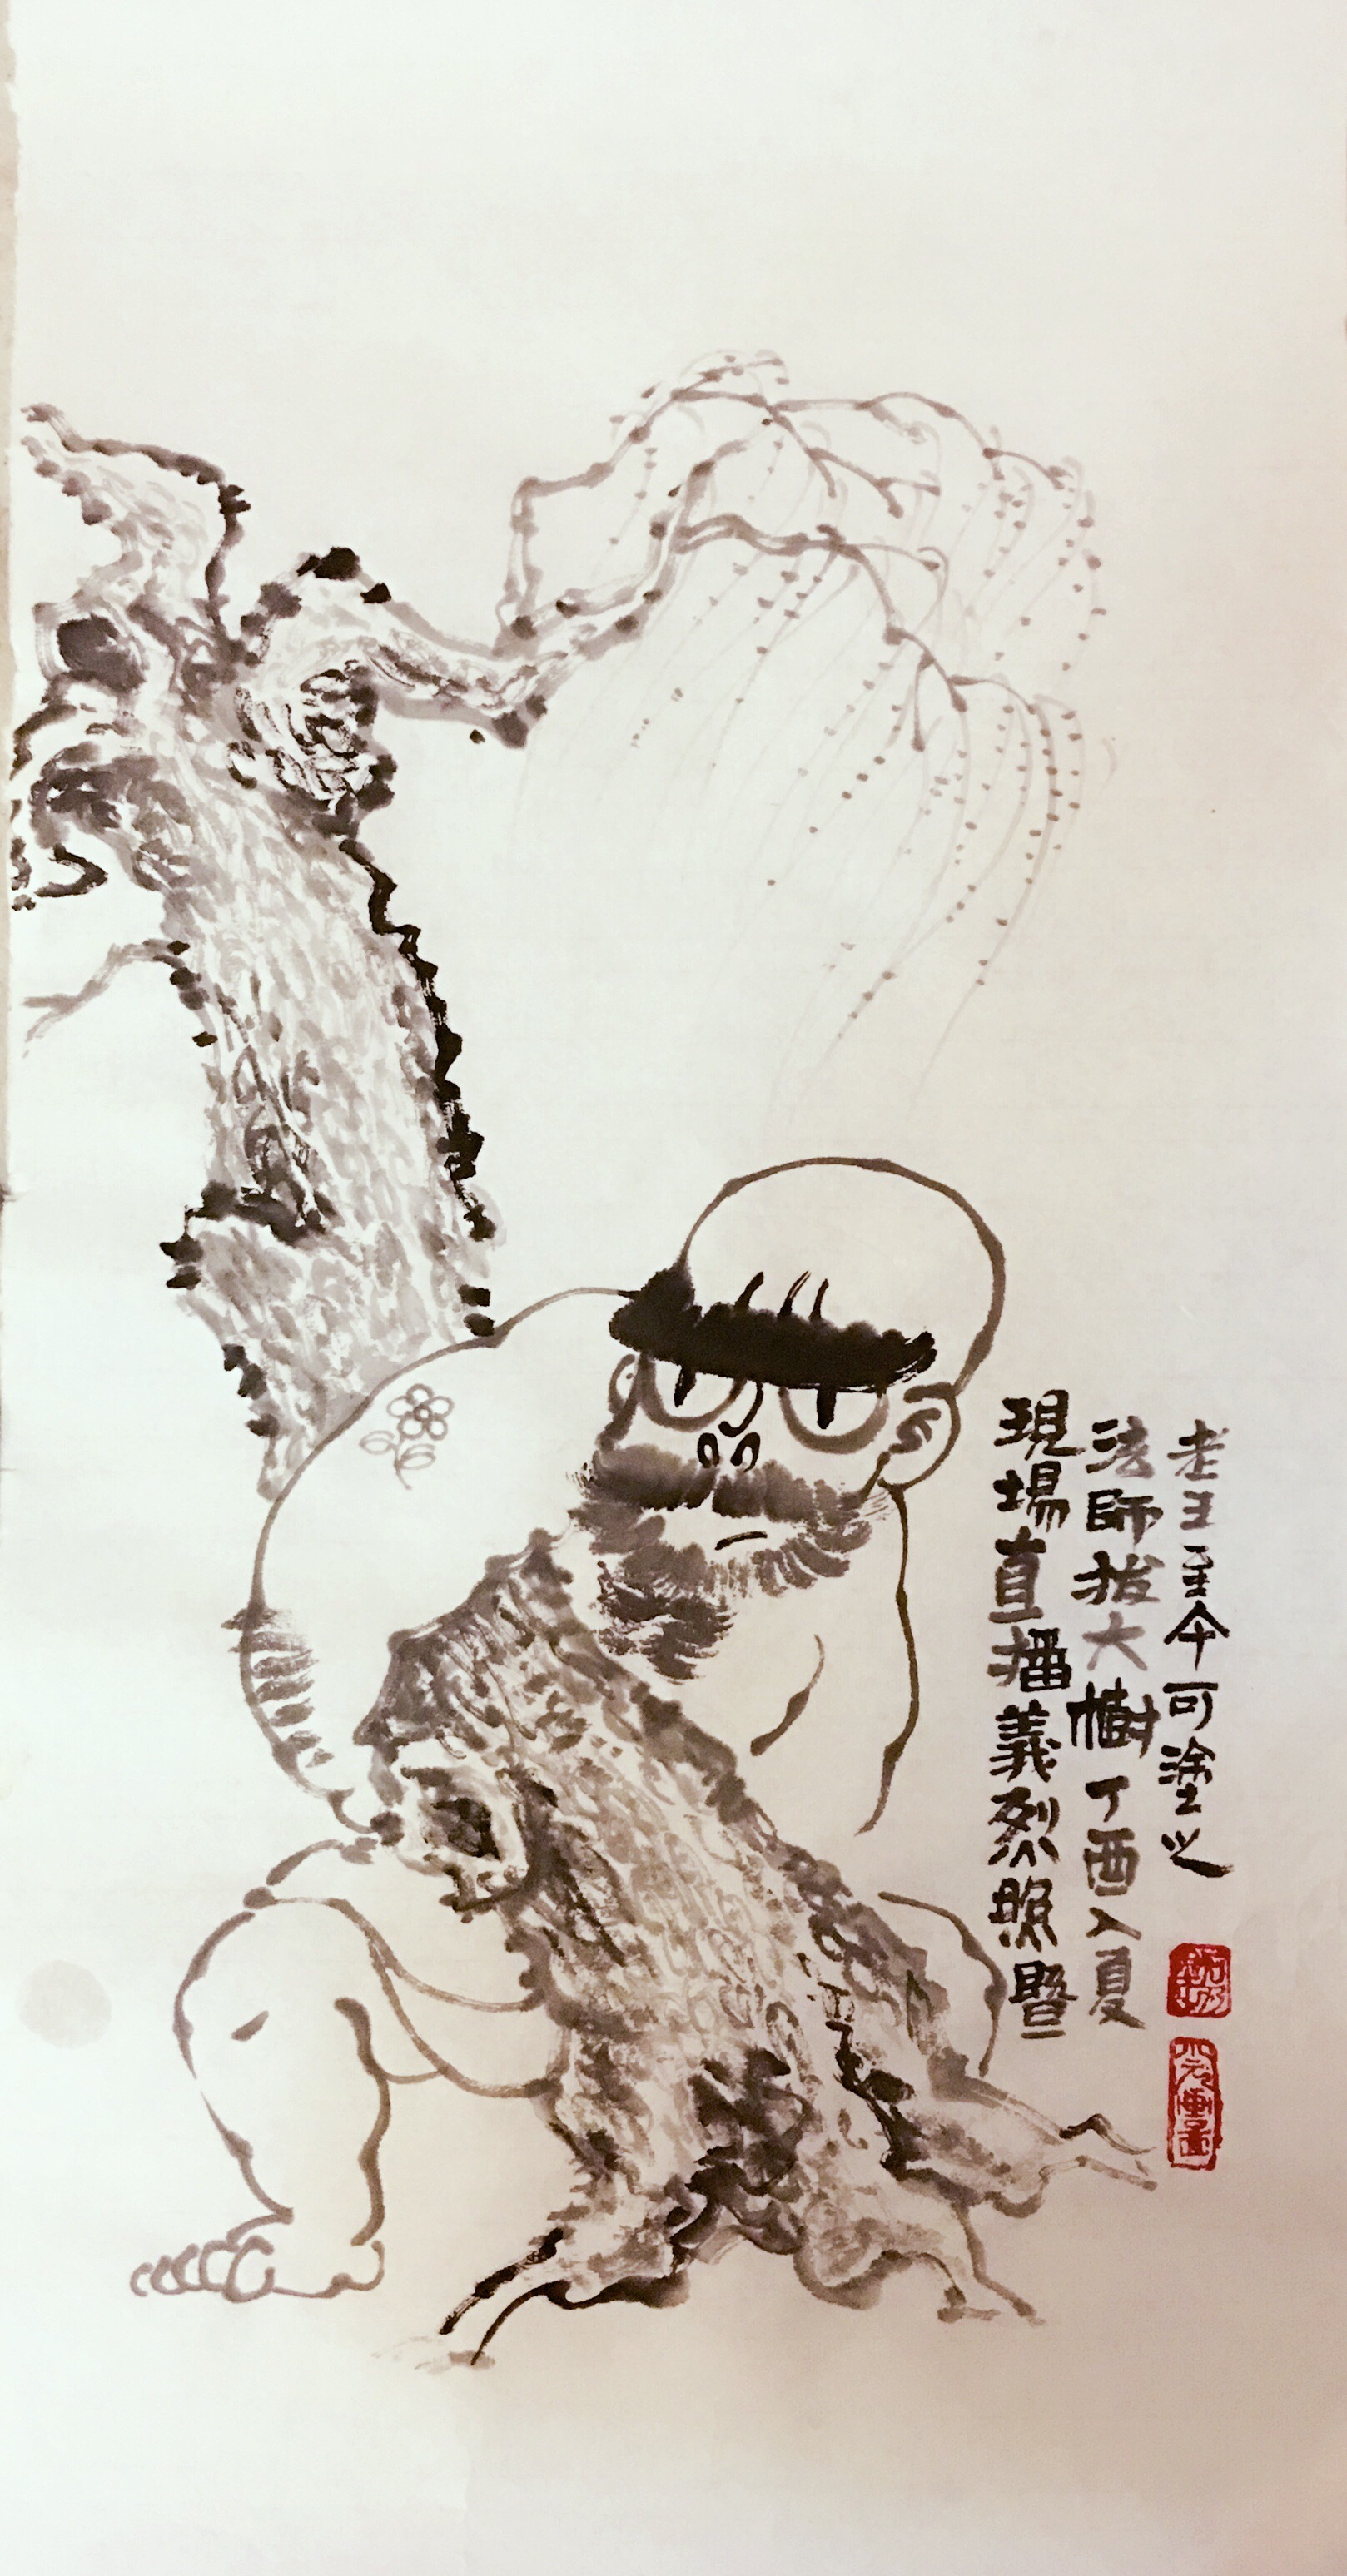 現場直播義烈照暨
法師拔大樹丁酉入夏
老王可塗之